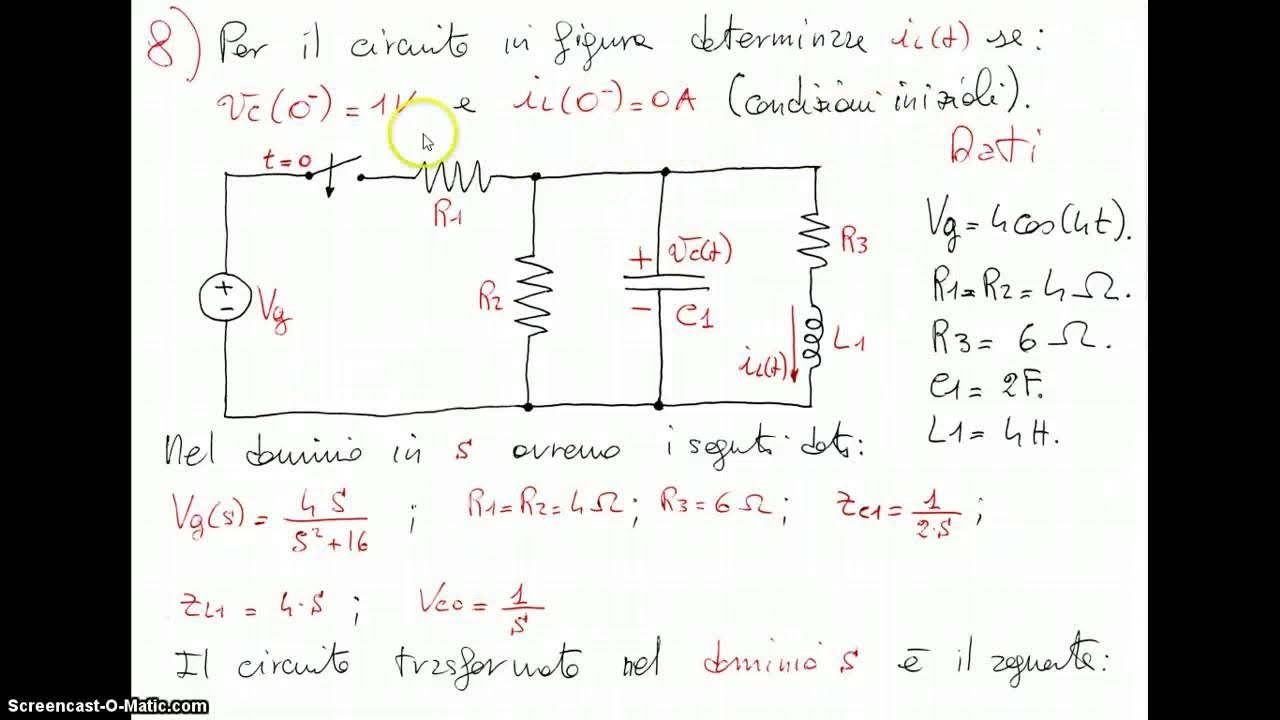 8) Per il circuito in figura determinare iL(t) se:
Vc(0⁻) = 1V e iL(0⁻) = 0A (condizioni iniziali).
Dati
t=0
R1
Vg = 4cos(4t).
+
-
Vg
R2
+
-
Vc(t)
C1
R3
iL(t)
L1
R1=R2=4Ω.
R3= 6Ω.
C1= 2F.
L1= 4H.
Nel dominio in s avremo i seguti dati:
Vg(s) = 4S / S²+16 ; R1=R2=4Ω; R3=6Ω; ZC1= 1 / 2·S ;
ZL1 = 4·S ; VC0 = 1 / S
Il circuito trasformato nel dominio S è il seguente:
Screencast-O-Matic.com